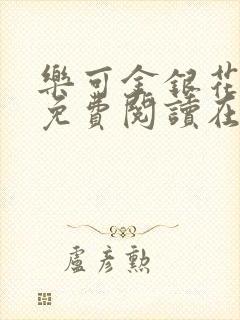 樂可金銀花
免費閱讀在
盧彥勲